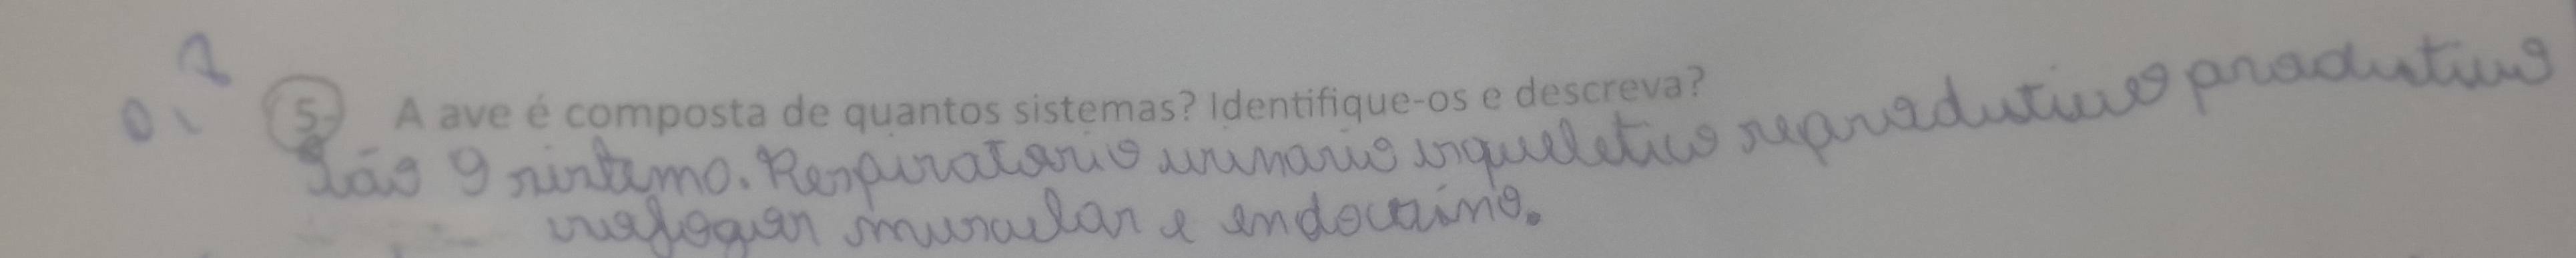 0,7
5- A ave é composta de quantos sistemas? Identifique-os e descreva?
São 9 sistema. Respiratorio urinario esqueletico reprodutivo produtivo
muscular e endocrino.